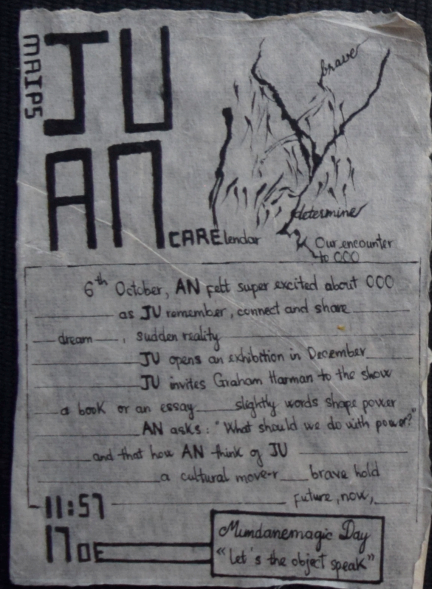 MAIPS
JU
AN
CARElendar
brave
determine
Our encounter
to OOO
6th October, AN felt super excited about OOO
as JU remember, connect and share
dream , sudden reality
JU opens an exhibition in December
JU invites Graham Harman to the show
a book or an essay slightly words shape power
AN asks: "What should we do with power?"
and that how AN think of JU
a cultural mover brave hold
future, now,
11:57
Mundanemagic Day
"Let's the object speak"